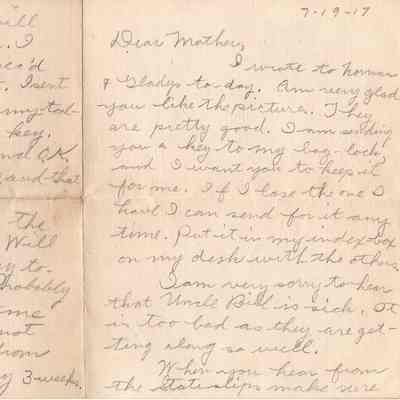 will
. I
ec'd
. I sent
my tool-
key.
nd O.K.
and that
the
Will
y to-
Probably
me
not
from
y 3-weeks.
7-19-17
Dear Mother,
I wrote to Norman
& Gladys to-day. Am very glad
you like the picture. They
are pretty good. I am sending
you a key to my bag-lock,
and I want you to keep it
for me. If I lose the one I
have I can send for it any
time. Put it in my index box
on my desk with the others.
I am very sorry to hear
that Uncle Bill is sick. It
is too bad as they are get-
ting along so well.
When you hear from
the State slips make sure